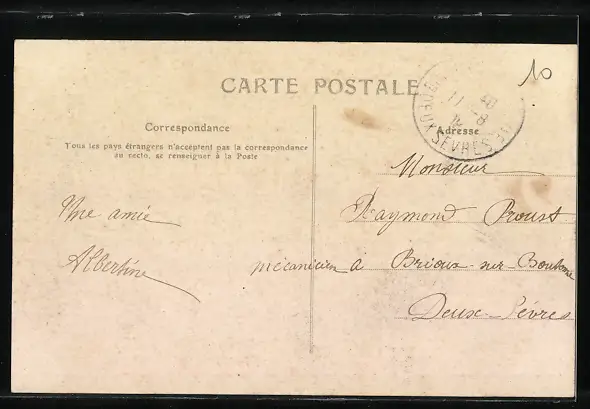 CARTE POSTALE
10
Correspondance
Tous les pays étrangers n'acceptent pas la correspondance
au recto, se renseigner à la Poste
Adresse
SEVRES
Une amie
Albertine
Monsieur
Raymond Proust
mécanicien à Brioux-sur-Boutonne
Deux-Sèvres